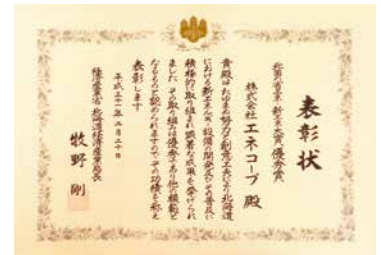 表彰状
北国の省エネ・新エネ大賞 優秀賞
株式会社 エネコープ 殿
貴殿はたゆまぬ努力と創意工夫により北海道
における新エネルギー設備の開発及びその普及に
積極的に取り組まれ顕著な成果を挙げられ
ました その取り組みは優秀であり他の模範と
なるものと認められますのでその功績を称え
表彰します
平成二十一年二月二十日
経済産業省 北海道経済産業局長
牧野 剛